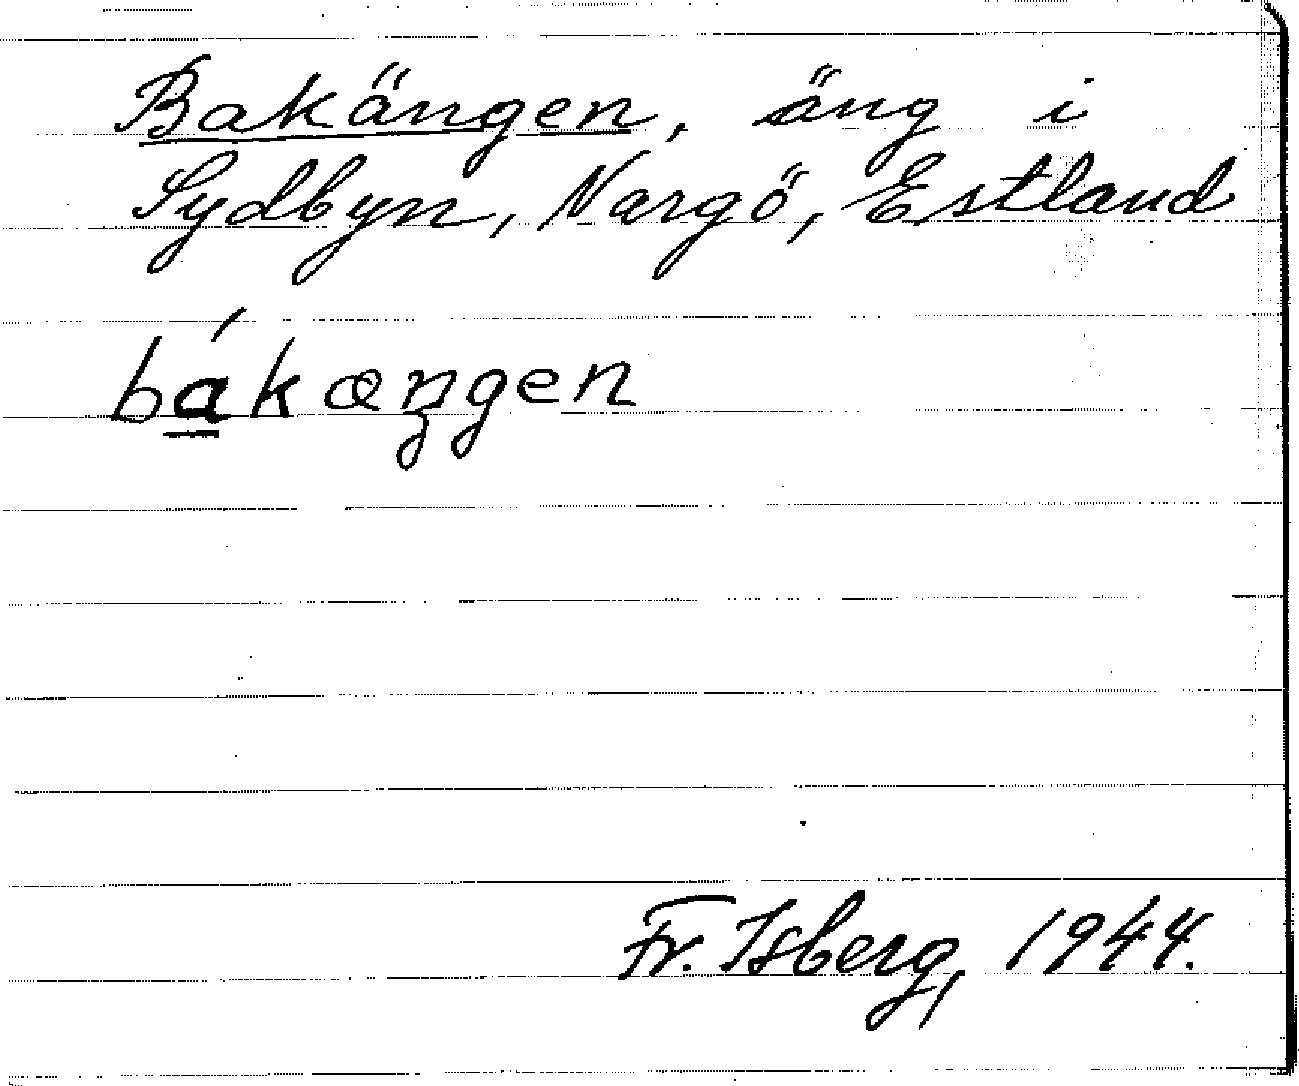 Bakängen, äng i
Sydbyn, Nargö, Estland
bákæŋgen
Fr. Isberg, 1944.